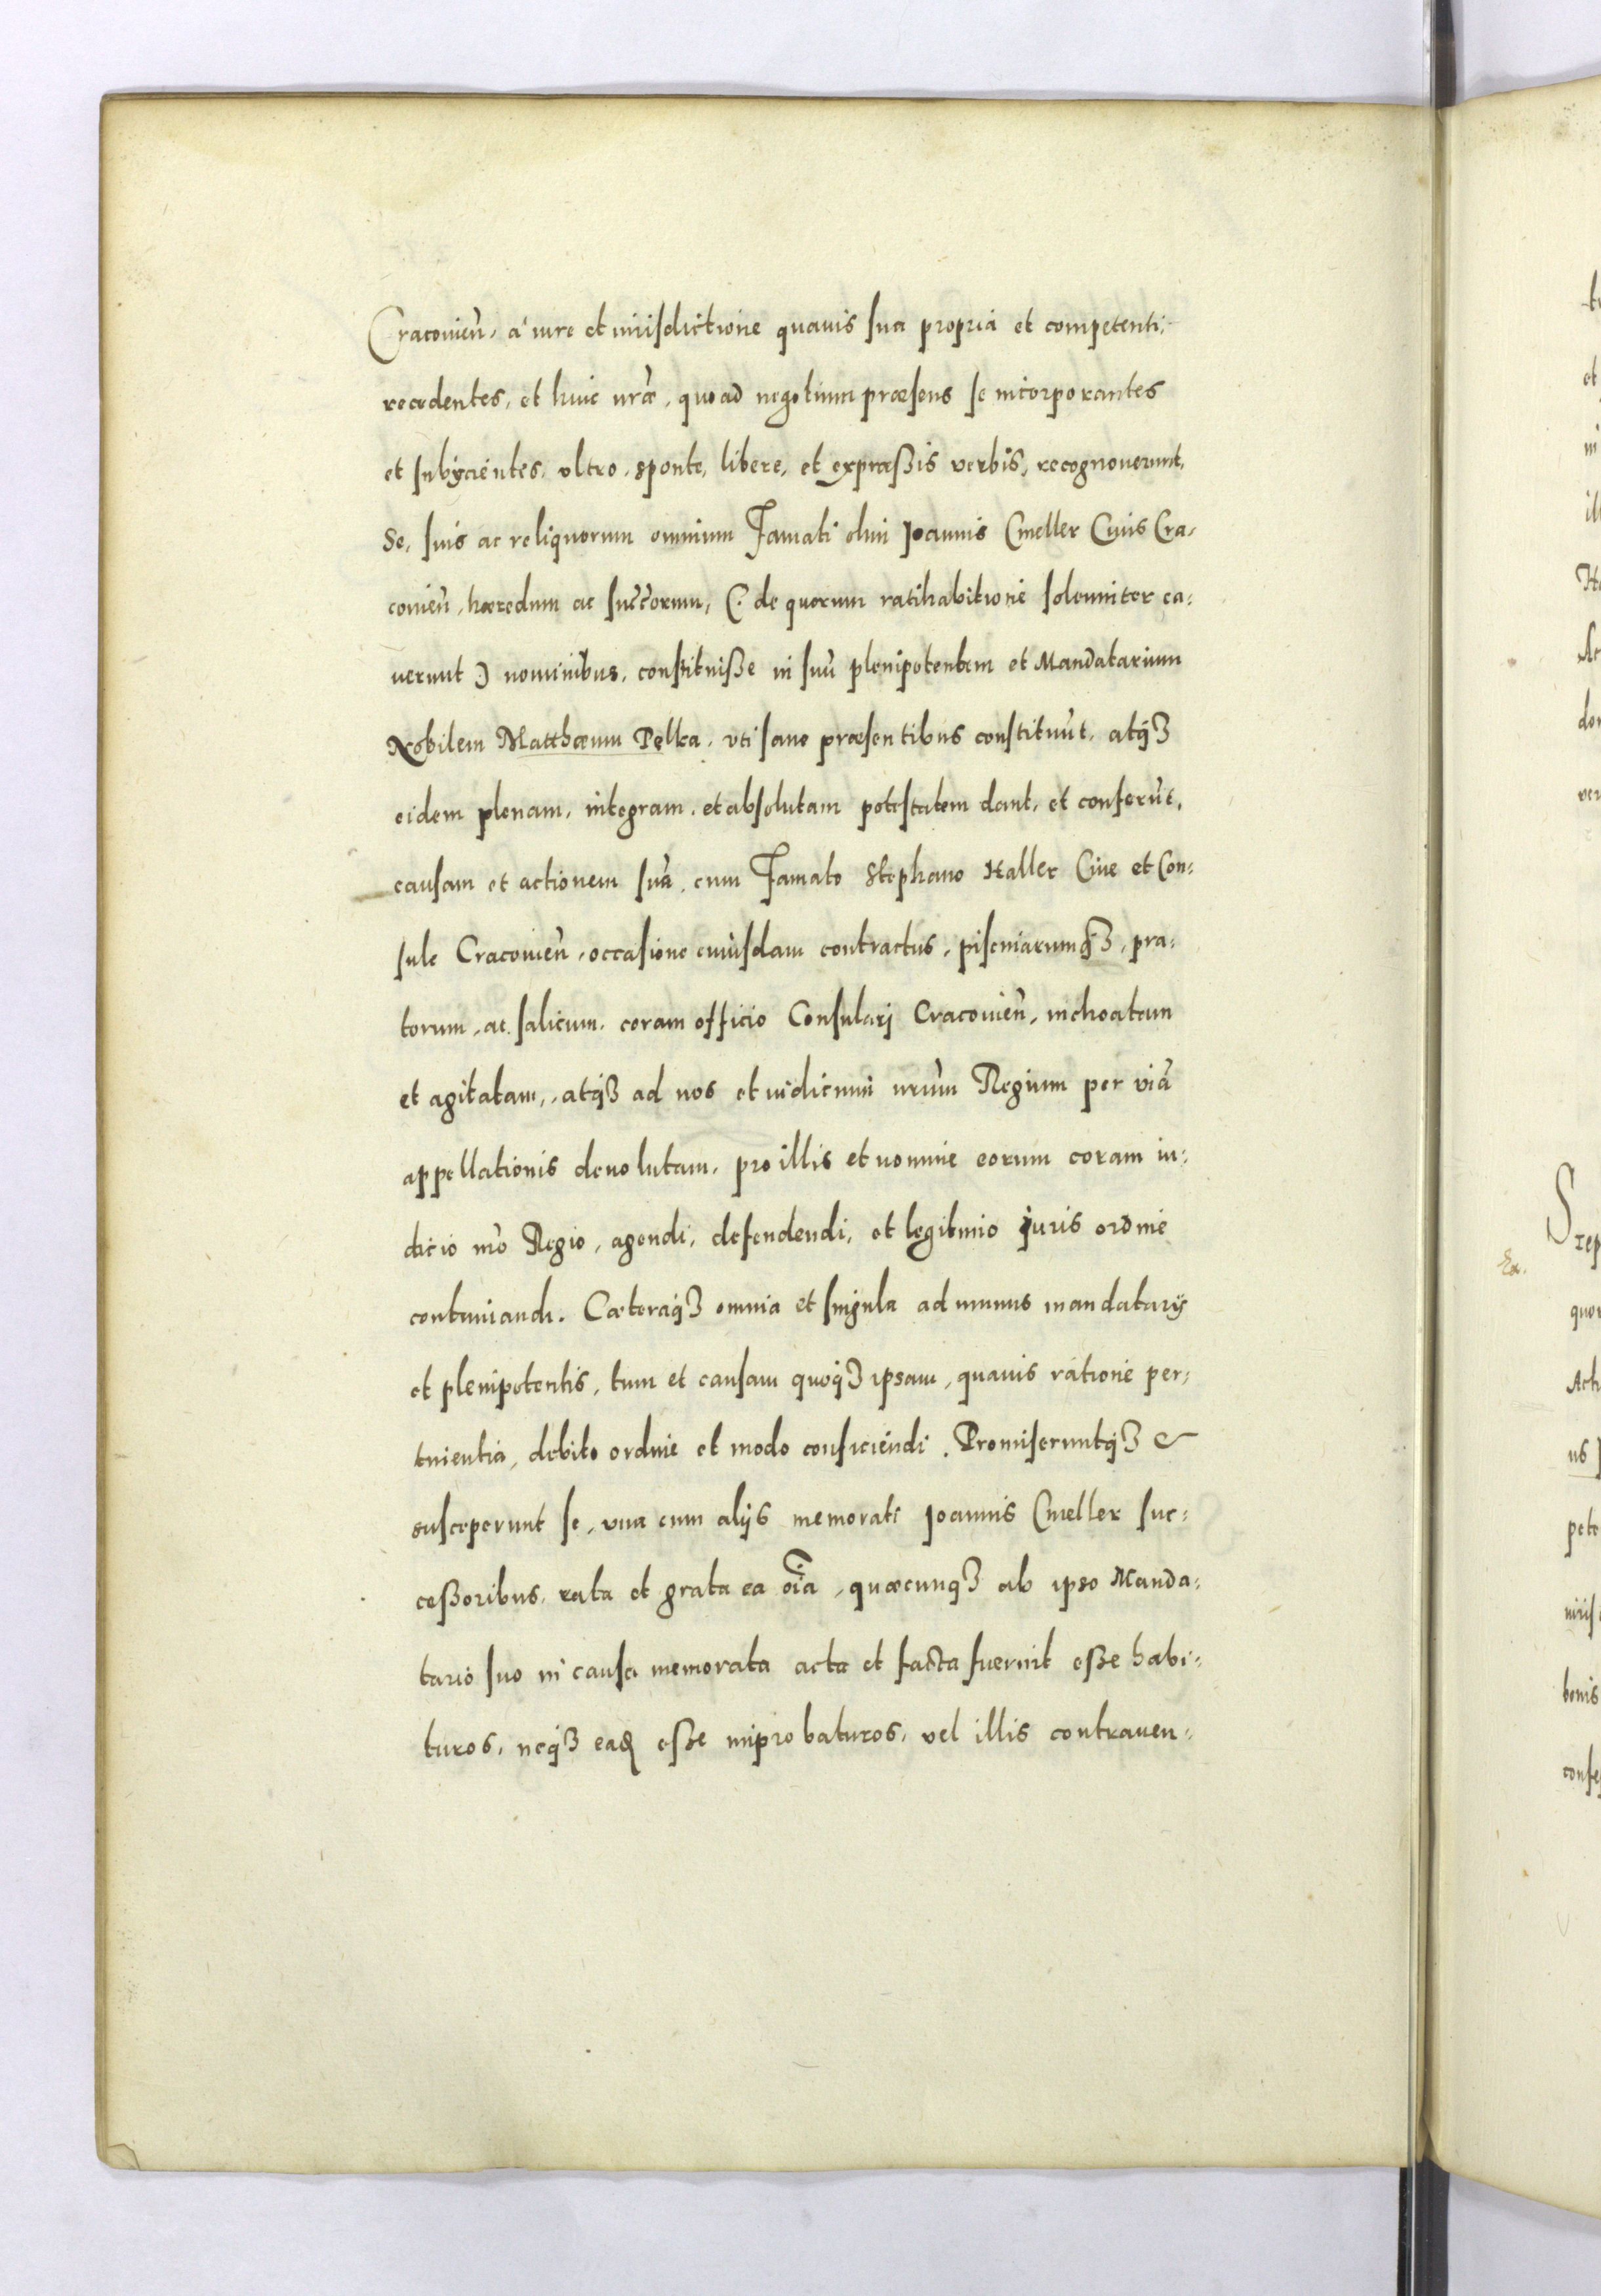 Cracovieñ, à iure et iurisdictione quavis sua propria et competenti,
recedentes, et huic nr̃æ, quoad negotium præsens se incorporantes
et subÿcientes, vltro, sponte, libere, et expræßis verbis, recognouerunt,
Se, suis ac reliquorum omnium Famati olim Joannis Cmeller Ciuis Cra-
couieñ, hæredum ac succorum, (: de quorum ratihabitione solenniter ca-
uerunt :) nominibus, constituiße in suũ plenipotentem et Mandatarium
Nobilem Matthæum Pęlka, vti sane præsentibus constituũt, atq3
eidem plenam, integram, et absolutam potestatem dant, et conferũt,
causam et actionem suã, cum Famato Stephano Haller Ciue et Con-
sule Cracouieñ, occasione cuiusdam contractus, pisciniarumq3, pra-
torum, ac salicum, coram officio Consulari Cracouieñ, inchoatam
et agitatam, atq3 ad nos et iudicium nr̃um Regium per viã
appellationis deuolutam, pro illis et nomine eorum coram iu-
dicio nr̃o Regio, agendi, defendendi, et legitimo juris ordine
conteniandi. Cæteraq3 omnia et singula ad munus mandatarÿ
et plenipotentis, tum et causam quoq3 ipsam, quauis ratione per-
tinentia, debito ordine et modo conficiendi. Promiseruntq3 &
susceperunt se, vna cum alijs memorati Joannis Cmeller suc-
ceßoribus, rata et grata ea oĩa, quæcunq3 ab ipso Manda-
tario suo in causa memorata acta et facta fuerint eße habi-
turos, neq3 eadẽ eße improbaturos, vel illis contrauen-